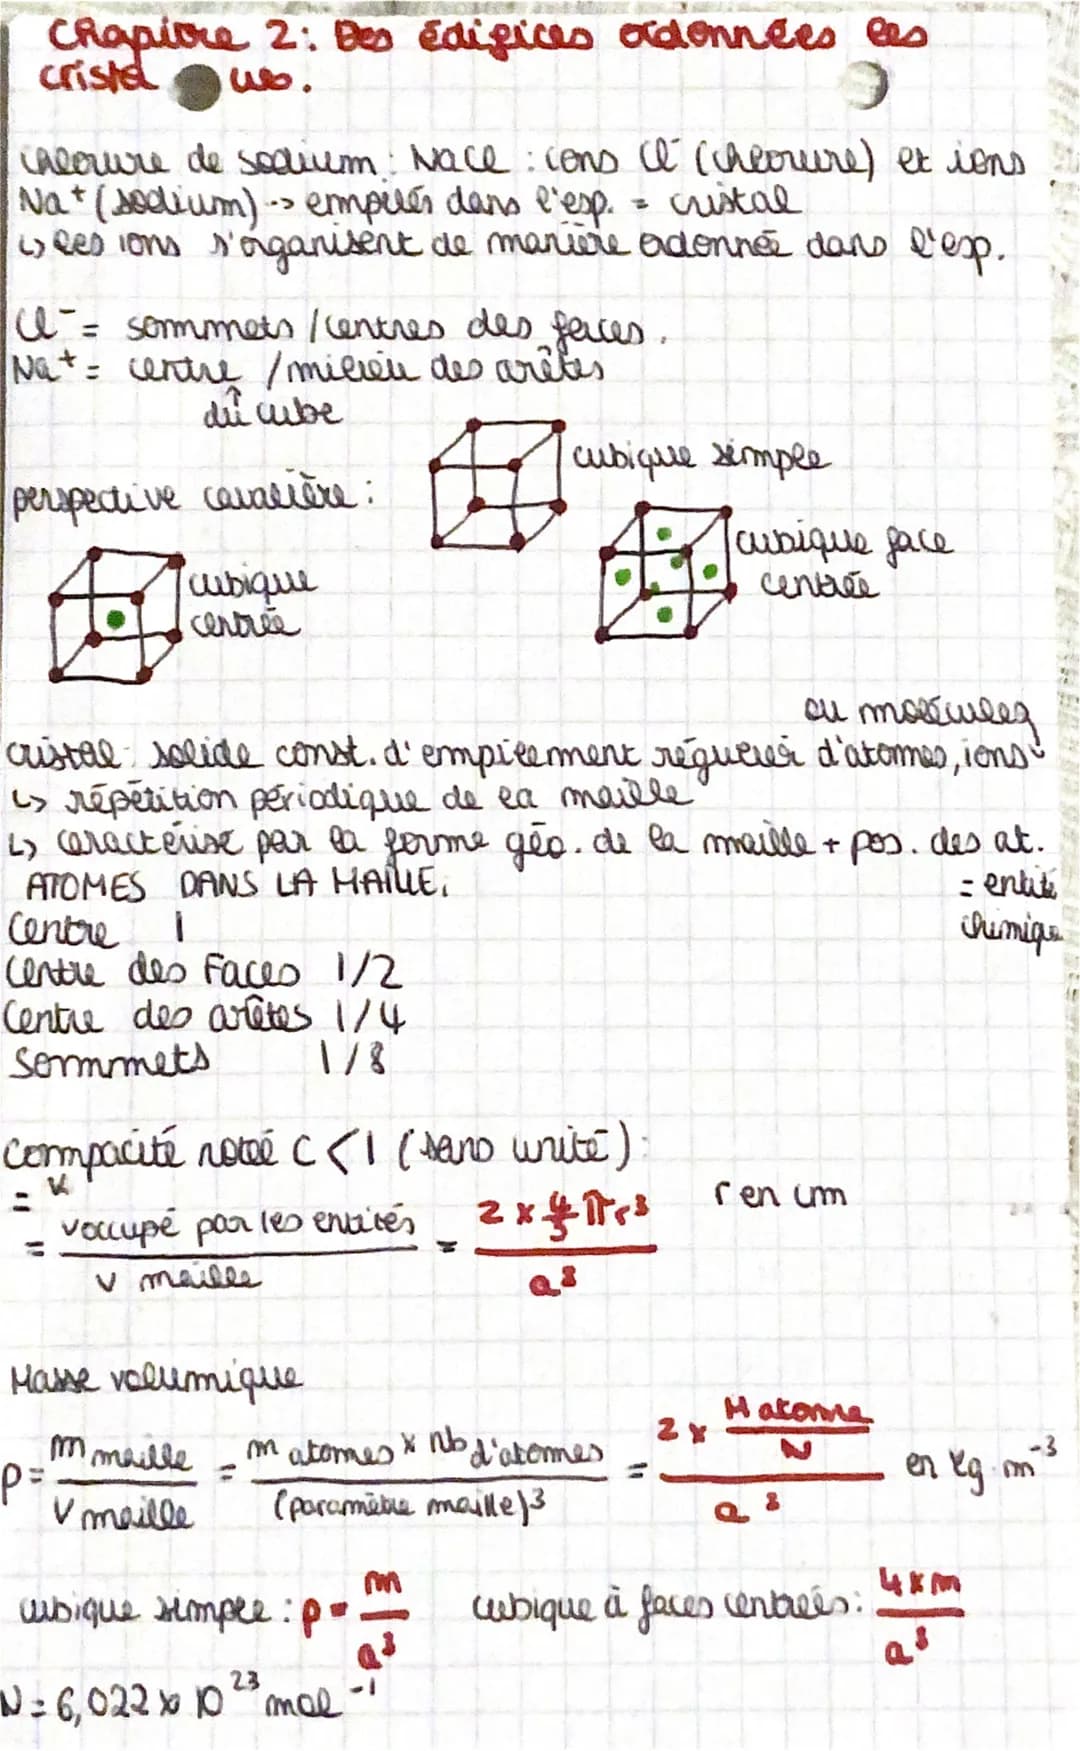 Chapitre 2: Des édifices ordonnées les
crista ux.
Chlorure de sodium : NaCl : ions Cl⁻ (chlorure) et ions
Na⁺ (sodium) -> empilés dans l'esp. = cristal
↳ les ions s'organisent de manière ordonnée dans l'esp.
Cl⁻ = sommets / centres des faces.
Na⁺ = centre / milieu des arêtes
du cube
cubique simple
perspective cavalière :
cubique face
centrée
cubique
centrée
ou molécules
cristal : solide const. d'empilement régulier d'atomes, ions
↳ répétition périodique de la maille
↳ caractérisé par la forme géo. de la maille + pos. des at.
ATOMES DANS LA MAILLE.
= entité
chimique
Centre 1
Centre des Faces 1/2
Centre des arêtes 1/4
Sommets 1/8
Compacité notée C < 1 (sans unité) :
= v occupé par les entités / v maille = 2 x 4/3 πr³ / a³
r en cm
Masse volumique
ρ = m maille / V maille = m atomes x Nb d'atomes / (paramètre maille)³ = 2 x M atome / N / a³ en kg.m⁻³
cubique simple : ρ = m / a³ cubique à faces centrées : 4 x m / a³
N = 6,022 x 10²³ mol⁻¹